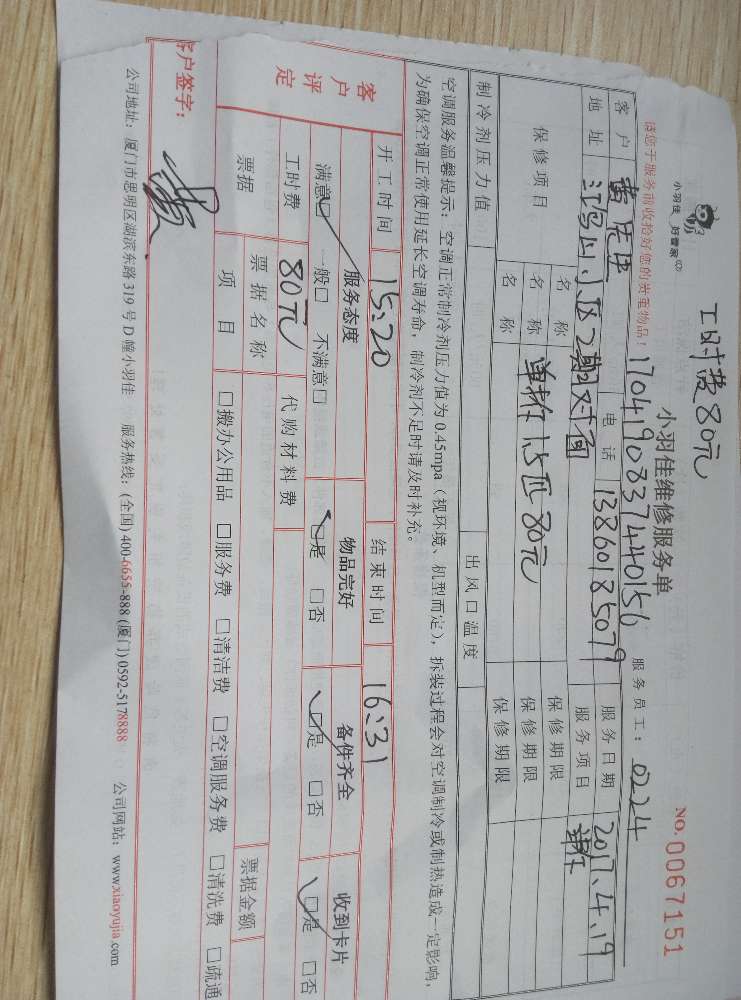 工时费80元
小羽佳 好管家
小羽佳维修服务单
NO.0067151
请您于服务前收拾好您的贵重物品! 1704190837440156 服务员工: 0224
客户 黄先生 电话 13860185079 服务日期 2017.4.19
地址 小区2期对面 服务项目
保修项目 名称 保修期限
名称 单拆1.5匹80元 保修期限
名称 保修期限
制冷剂压力值 出风口温度
空调服务温馨提示:空调正常制冷剂压力值为0.45mpa(视环境、机型而定),拆装过程会对空调制冷或制热造成一定影响,
为确保空调正常使用延长空调寿命,制冷剂不足时请及时补充。
开工时间 15:20 结束时间 16:31
客户评定 服务态度 物品完好 备件齐全 收到卡片
满意□ 一般□ 不满意□ □是 □否 □是 □否 □是 □否
工时费 80元 代购材料费
票据 票据名称 票据金额
项目 □搬办公用品 □服务费 □清洁费 □空调服务费 □清洗费 □疏通
客户签字:
公司地址:厦门市思明区湖滨东路319号D幢小羽佳 服务热线:(全国)400-6655-888(厦门)0592-5178888 公司网站:www.xiaoyujia.com